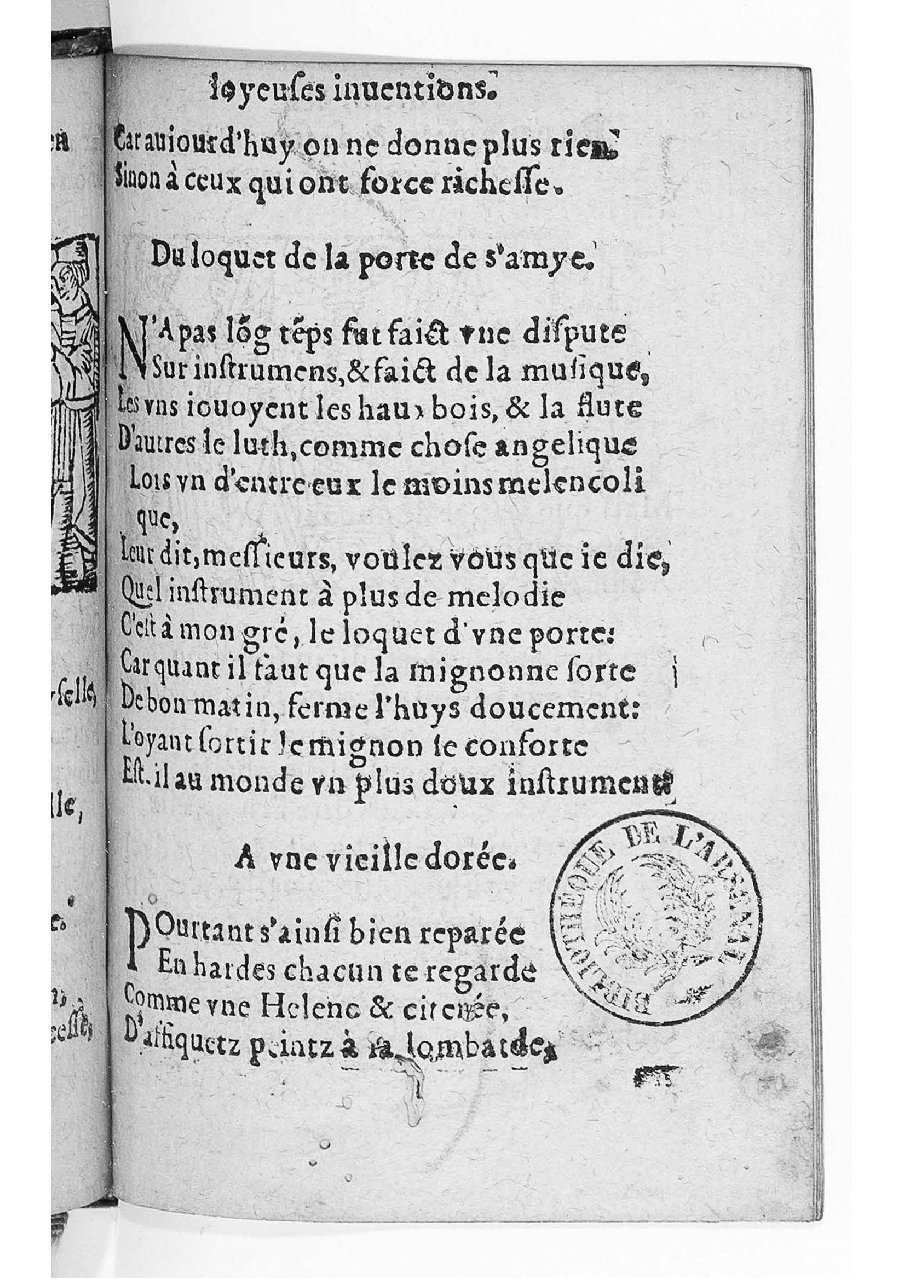 Ioyeuſes inuentions.
Car auiourd'huy on ne donne plus rien.
Sinon à ceux qui ont force richeſſe.
Du loquet de la porte de s'amye.
N'A pas lõg tẽps fut faict vne diſpute
Sur inſtrumens, & faict de la muſique,
Les vns iouoyent les haux bois, & la flute
D'autres le luth, comme choſe angelique
Lors vn d'entre eux le moins melencoli
que,
Leur dit, meſſieurs, voulez vous que ie die,
Quel inſtrument à plus de melodie
C'eſt à mon gré, le loquet d'vne porte:
Car quant il faut que la mignonne ſorte
De bon matin, ferme l'huys doucement:
L'oyant ſortir le mignon ſe conforte
Eſt-il au monde vn plus doux inſtrument
A vne vieille dorée.
POurtant s'ainſi bien reparée
En hardes chacun te regarde
Comme vne Helene & citerée,
D'affiquetz peintz à la lombarde,
BIBLIOTHEQUE DE L'ARSENAL
en
ſelle,
lle,
eſſe,